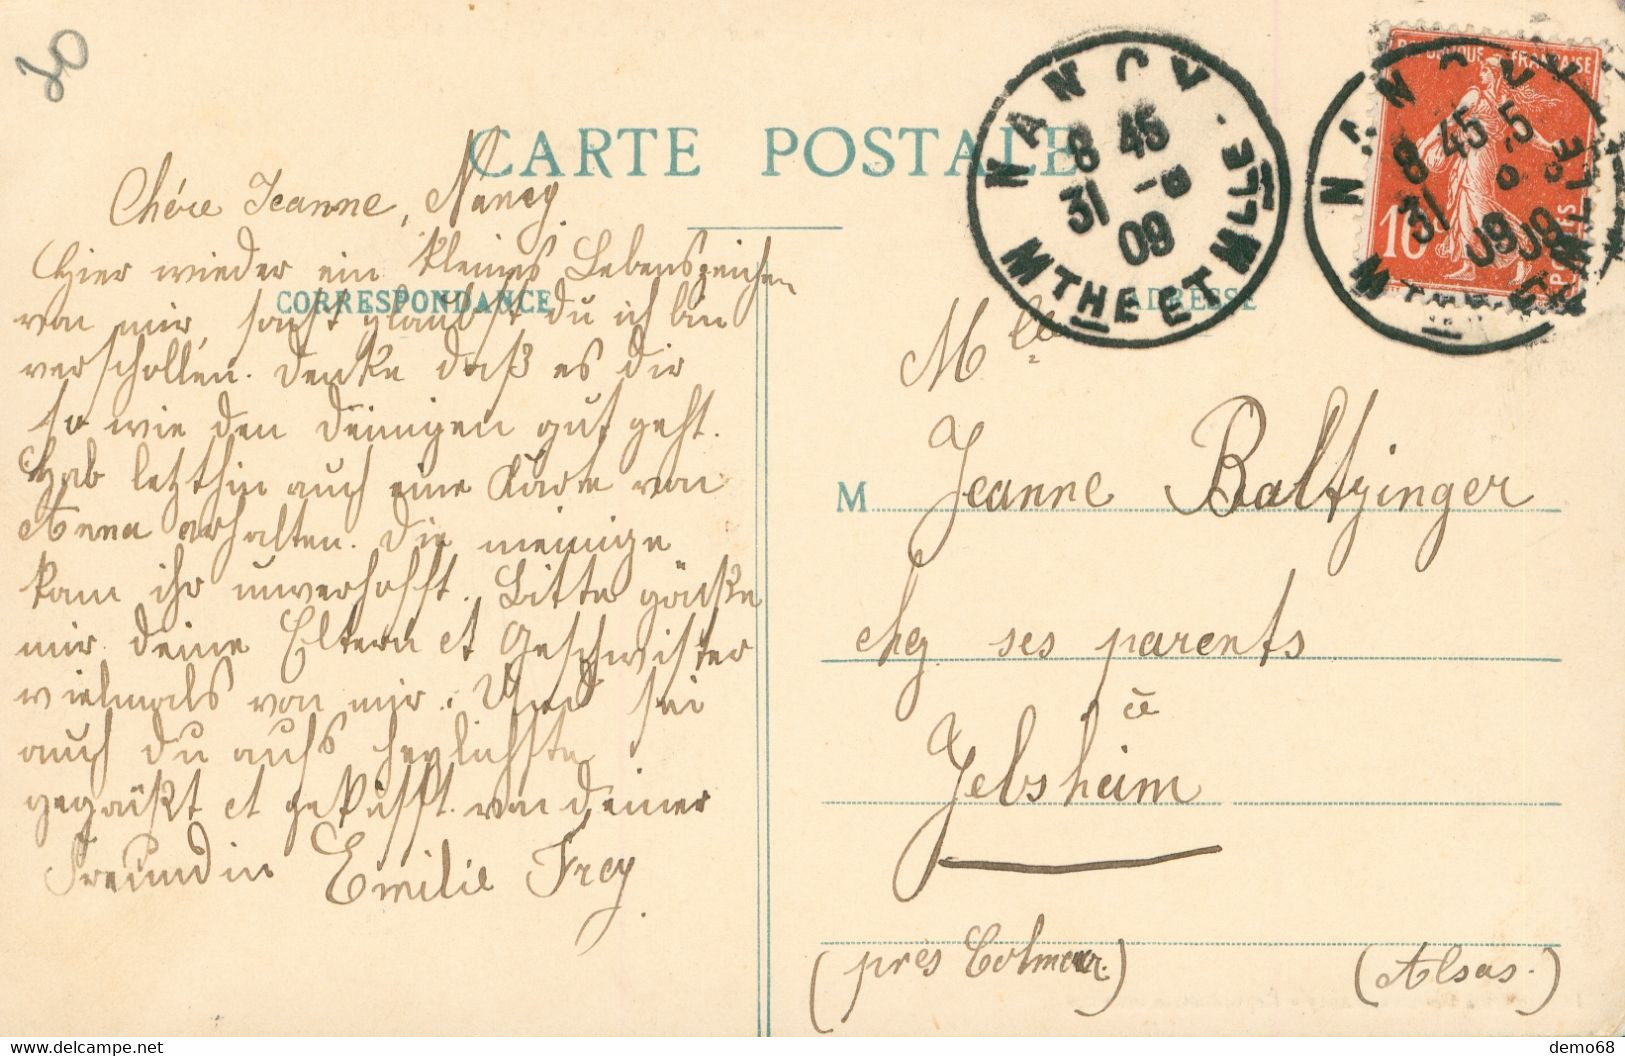 20
CARTE POSTALE
NANCY
8 45
31 -8
09
MTHE ET MLLE
NANCY
8 45
31
09
REPUBLIQUE FRANÇAISE
10
POSTES
CORRESPONDANCE
ADRESSE
Chére Jeanne, Nancy
Hier wieder ein kleines Lebenszeichen
von mir, sonst glaubst du ich bin
verschollen. Denke daß es dir
so wie den deinigen gut geht.
Hab letzthin auch eine Karte von
Anna erhalten. Die meinige
kam ihr unverhofft. Bitte grüße
mir deine Eltern et Geschwister
vielmals von mir. Und sei
auch du aufs herzlichste
gegrüßt et geküsst von deiner
Freundin Emilie Frey.
Mlle
M Jeanne Baltzinger
chez ses parents
à
Jebsheim
(près Colmar.) (Alsas.)
demo68